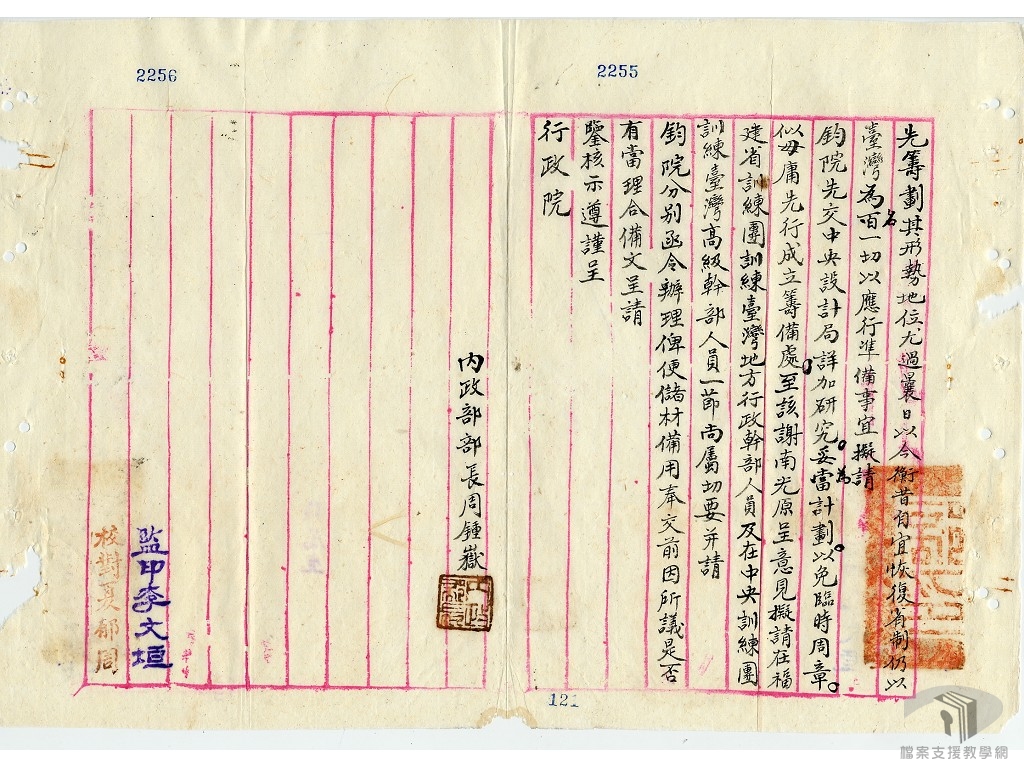 2256
2255
先籌劃其形勢地位尤過曩日以今衡昔自宜恢復省制仍以
臺灣為名百一切以應行準備事宜擬請
鈞院先交中央設計局詳加研究。妥當為計劃。以免臨時周章。
似毋庸先行成立籌備處。至該謝南光原呈意見擬請在福
建省訓練團訓練臺灣地方行政幹部人員及在中央訓練團
訓練臺灣高級幹部人員一節尚屬切要并請
鈞院分別函令辦理俾便儲材備用奉交前因所議是否
有當理合備文呈請
鑒核示遵謹呈
行政院
內政部部長周鍾嶽
監印李文垣
校對夏郁周
121
檔案支援教學網